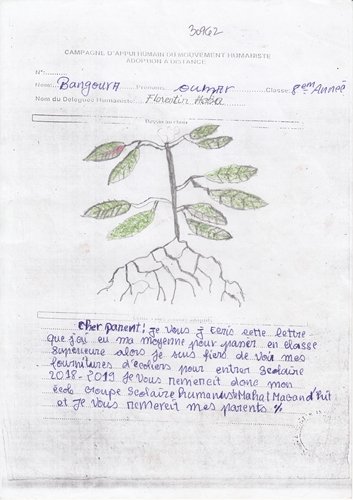 30962
CAMPAGNE D'APPUI HUMAIN DU MOUVEMENT HUMANISTE
ADOPTION A DISTANCE
N°:
Nom: Bangoura Prénoms: oumar Classe: 8em Année
Nom du Délégués Humaniste: Florentin Haba
Dessin au choix
Cher parent! Je vous j Ecris cette lettre
que j'ai eu ma moyenne pour passer en classe
superieure alors je suis fiers de voir mes
fournitures d'écoliers pour entrer scolaire
2018-2019 Je vous remercit donc mon
école Groupe Scolaire humaniste Mahat Magandhi
et Je vous remercit mes parents %